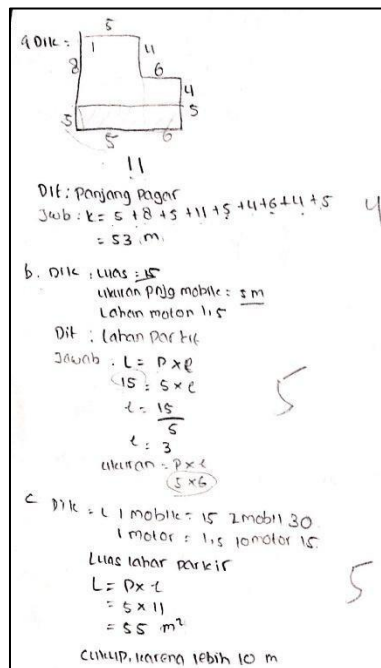 a Dik =
5
1
11
8
6
4
5
5
5
6
11
Dit : Panjang Pagar
Jwb : k = 5 + 8 + 5 + 11 + 5 + 4 + 6 + 4 + 5
= 53 m
4
b. Dik : Luas : 15
ukuran pnjg mobile : 5 m
Lahan motor 1,5
Dit : lahan parkir
Jawab : L = P x l
15 = 5 x l
l = 15
5
l = 3
ukuran = P x l
5 x 6
5
c Dik = L 1 mobile = 15 2mobil 30
1 motor = 1,5 10motor 15
Luas lahar parkir
L = P x l
= 5 x 11
= 55 m²
cukup, karena lebih 10 m
5